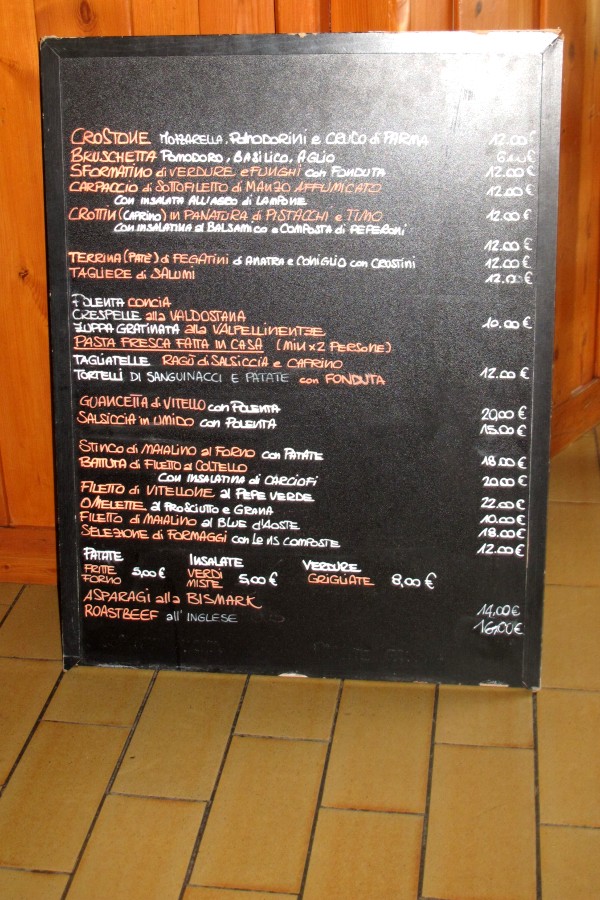 CROSTONE MOZZARELLA, POMODORINI e CRUDO di PARMA 12.00€
BRUSCHETTA POMODORO, BASILICO, AGLIO 6.00€
SFORMATINO di VERDURE e FUNGHI con FONDUTA 12.00€
CARPACCIO di SOTTOFILETTO di MANZO AFFUMICATO 12.00€
CON INSALATA ALL'AGRO di LAMPONE
CROTTIN (CAPRINO) in PANATURA di PISTACCHI e TIMO 12.00€
CON INSALATINA al BALSAMICO e COMPOSTA di PEPERONI
12.00€
TERRINA (PATÈ) di FEGATINI di ANATRA e CONIGLIO con CROSTINI 12.00€
TAGLIERE di SALUMI 12.00€
POLENTA CONCIA
CRESPELLE alla VALDOSTANA 10.00€
ZUPPA GRATINATA alla VALPELLINENTZE
PASTA FRESCA FATTA IN CASA (MIN x 2 PERSONE)
TAGLIATELLE RAGÙ di SALSICCIA e CAPRINO
TORTELLI DI SANGUINACCI E PATATE con FONDUTA 12.00€
GUANCETTA di VITELLO con POLENTA 20,00€
SALSICCIA in UMIDO con POLENTA 15.00€
STINCO di MAIALINO al FORNO con PATATE 18.00€
BATTUTA di FILETTO al COLTELLO
CON INSALATINA di CARCIOFI 20.00€
FILETTO di VITELLONE al PEPE VERDE 22.00€
OMELETTE al PROSCIUTTO e GRANA 10.00€
FILETTO di MAIALINO al BLUE d'AOSTE 18.00€
SELEZIONE di FORMAGGI con le ns COMPOSTE 12.00€
PATATE INSALATE VERDURE
FRITTE 5,00€ VERDI 5,00€ GRIGLIATE 8,00€
FORNO MISTE
ASPARAGI alla BISMARK 14,00€
ROASTBEEF all'INGLESE 16,00€